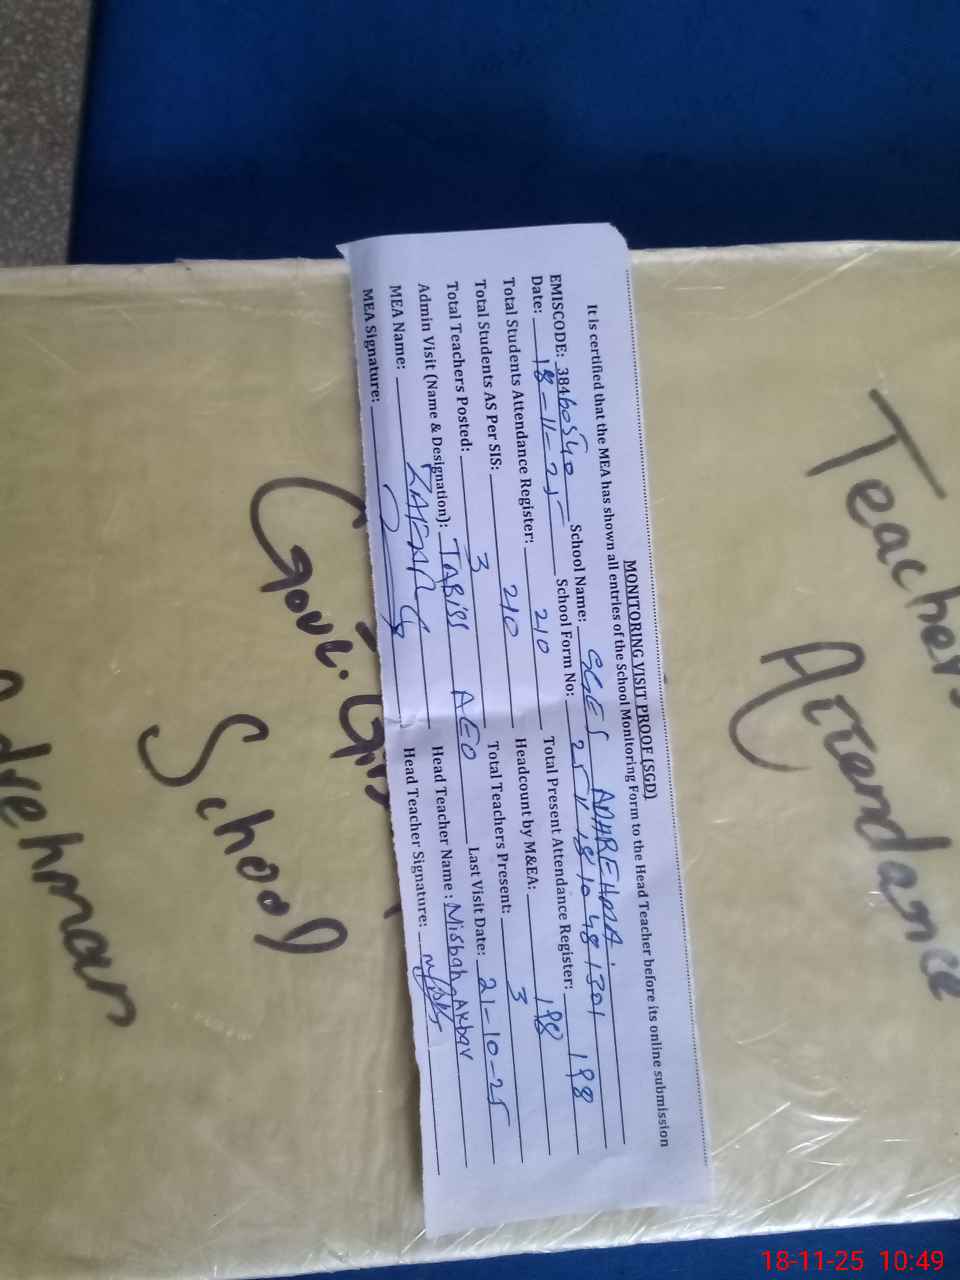 MONITORING VISIT PROOF (SGD)
It is certified that the MEA has shown all entries of the School Monitoring Form to the Head Teacher before its online submission
EMISCODE: 38460540 School Name: SGES ADAREHMA
Date: 18-11-25 School Form No:
Total Students Attendance Register: 210 Total Present Attendance Register: 198
Total Students AS Per SIS: 210 Headcount by M&EA: 198
Total Teachers Posted: 3 Total Teachers Present: 3
Admin Visit (Name & Designation): AEO Last Visit Date: 21-10-25
MEA Name: Head Teacher Name: Misbah Akbar
MEA Signature: Head Teacher Signature:
Teacher
Attendance
Govt. Girls
School
18-11-25 10:49